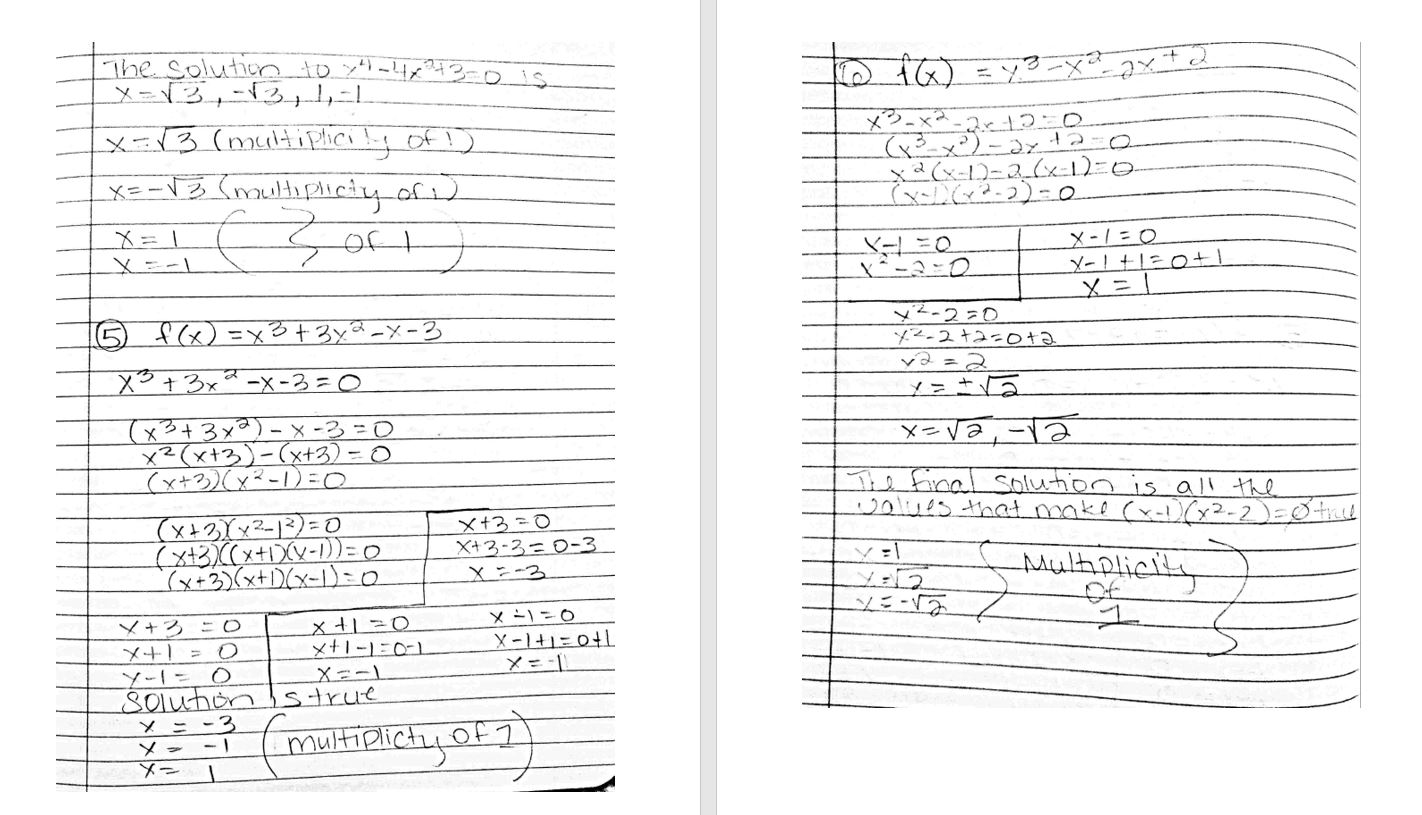 The solution to x⁴-4x²+3=0 is
x=√3, -√3, 1, -1
x=√3 (multiplicity of 1)
x=-√3 (multiplicty of 1)
x=1
x=-1
( } of 1 )
⑤ f(x) = x³+3x²-x-3
x³+3x²-x-3=0
(x³+3x²)-x-3=0
x²(x+3)-(x+3)=0
(x+3)(x²-1)=0
(x+3)(x²-1²)=0
(x+3)((x+1)(x-1))=0
(x+3)(x+1)(x-1)=0
x+3=0
x+3-3=0-3
x=-3
x+3=0
x+1=0
x-1=0
x+1=0
x+1-1=0-1
x=-1
x-1=0
x-1+1=0+1
x=-1
Solution is true
x=-3
x=-1
x=1
(multiplicty of 1)
⑥ f(x) = x³-x²-2x+2
x³-x²-2x+2=0
(x³-x²)-2x+2=0
x²(x-1)-2(x-1)=0
(x-1)(x²-2)=0
x-1=0
x²-2=0
x-1=0
x-1+1=0+1
x=1
x²-2=0
x²-2+2=0+2
x²=2
x=±√2
x=√2, -√2
The final solution is all the
values that make (x-1)(x²-2)=0 true
x=1
x=√2
x=-√2
Multiplicity
of
1